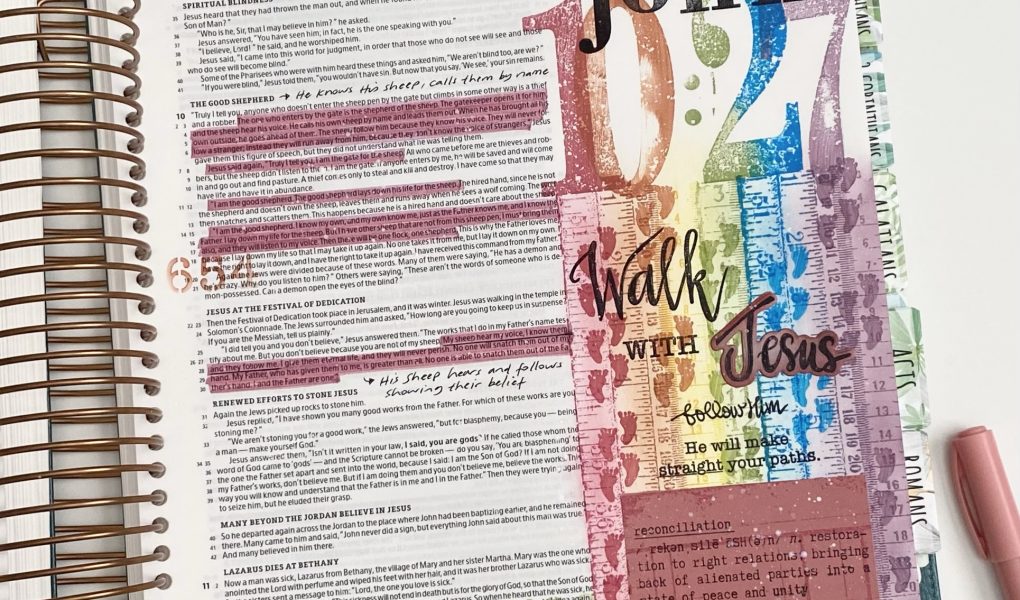 SPIRITUAL BLINDNESS
35 Jesus heard that they had thrown the man out, and when he found
Son of Man?"
36 "Who is he, Sir, that I may believe in him?" he asked.
37 Jesus answered, "You have seen him; in fact, he is the one speaking with you."
38 "I believe, Lord!" he said, and he worshiped him.
39 Jesus said, "I came into this world for judgment, in order that those who do not see will see and those
who do see will become blind."
40 Some of the Pharisees who were with him heard these things and asked him, "We aren't blind too, are we?"
41 "If you were blind," Jesus told them, "you wouldn't have sin. But now that you say, 'We see,' your sin remains.
THE GOOD SHEPHERD → He knows His sheep, calls them by name
10 "Truly I tell you, anyone who doesn't enter the sheep pen by the gate but climbs in some other way is a thief
2 and a robber. The one who enters by the gate is the shepherd of the sheep. 3 The gatekeeper opens it for him,
and the sheep hear his voice. He calls his own sheep by name and leads them out. 4 When he has brought all his
own outside, he goes ahead of them. The sheep follow him because they know his voice. 5 They will never fol-
low a stranger; instead they will run away from him, because they don't know the voice of strangers." 6 Jesus
gave them this figure of speech, but they did not understand what he was telling them.
7 Jesus said again, "Truly I tell you, I am the gate for the sheep. 8 All who came before me are thieves and rob-
bers, but the sheep didn't listen to them. 9 I am the gate. If anyone enters by me, he will be saved and will come
10 in and go out and find pasture. A thief comes only to steal and kill and destroy. I have come so that they may
have life and have it in abundance.
11 12 "I am the good shepherd. The good shepherd lays down his life for the sheep. The hired hand, since he is not
the shepherd and doesn't own the sheep, leaves them and runs away when he sees a wolf coming. The wolf
13 then snatches and scatters them. This happens because he is a hired hand and doesn't care about the sheep.
14 15 "I am the good shepherd. I know my own, and my own know me, just as the Father knows me, and I know the
16 Father. I lay down my life for the sheep. But I have other sheep that are not from this sheep pen; I must bring them
17 also, and they will listen to my voice. Then there will be one flock, one shepherd. This is why the Father loves me,
because I lay down my life so that I may take it up again. No one takes it from me, but I lay it down on my own.
I have the right to lay it down, and I have the right to take it up again. I have received this command from my Father."
the Jews were divided because of these words. Many of them were saying, "He has a demon and
crazy. Why do you listen to him?" Others were saying, "These aren't the words of someone who is de-
mon-possessed. Can a demon open the eyes of the blind?"
654
JESUS AT THE FESTIVAL OF DEDICATION
22 23 Then the Festival of Dedication took place in Jerusalem, and it was winter. Jesus was walking in the temple in
24 Solomon's Colonnade. The Jews surrounded him and asked, "How long are you going to keep us in suspense?
If you are the Messiah, tell us plainly."
25 "I did tell you and you don't believe," Jesus answered them. "The works that I do in my Father's name tes-
tify about me. But you don't believe because you are not of my sheep. My sheep hear my voice, I know them,
28 and they follow me. I give them eternal life, and they will never perish. No one will snatch them out of my
29 hand. My Father, who has given them to me, is greater than all. No one is able to snatch them out of the Fa-
30 ther's hand. I and the Father are one."
↪ His sheep hears and follows
showing their belief
RENEWED EFFORTS TO STONE JESUS
31 Again the Jews picked up rocks to stone him.
32 Jesus replied, "I have shown you many good works from the Father. For which of these works are you
stoning me?"
33 "We aren't stoning you for a good work," the Jews answered, "but for blasphemy, because you — being
a man — make yourself God."
34 35 Jesus answered them, "Isn't it written in your law, I said, you are gods? If he called those whom the
36 word of God came to 'gods' — and the Scripture cannot be broken — do you say, 'You are blaspheming' to
the one the Father set apart and sent into the world, because I said: I am the Son of God? If I am not doing
my Father's works, don't believe me. But if I am doing them and you don't believe me, believe the works. This
39 way you will know and understand that the Father is in me and I in the Father." Then they were trying again
to seize him, but he eluded their grasp.
MANY BEYOND THE JORDAN BELIEVE IN JESUS
40 So he departed again across the Jordan to the place where John had been baptizing earlier, and he remained
41 there. Many came to him and said, "John never did a sign, but everything John said about this man was true."
42 And many believed in him there.
LAZARUS DIES AT BETHANY
11 2 Now a man was sick, Lazarus from Bethany, the village of Mary and her sister Martha. Mary was the one who
anointed the Lord with perfume and wiped his feet with her hair, and it was her brother Lazarus who was sick.
sent a message to him: "Lord, the one you love is sick."
sickness will not end in death but is for the glory of God, so that the Son of God
John
10:27
Walk
WITH Jesus
follow Him
He will make
straight your paths.
reconciliation
rekən silē ˈāSH(ə)n/ n. restora-
tion to right relations; bringing
back of alienated parties into a
state of peace and unity
CORINTHIANS
GALATIANS
ACTS
ROMANS